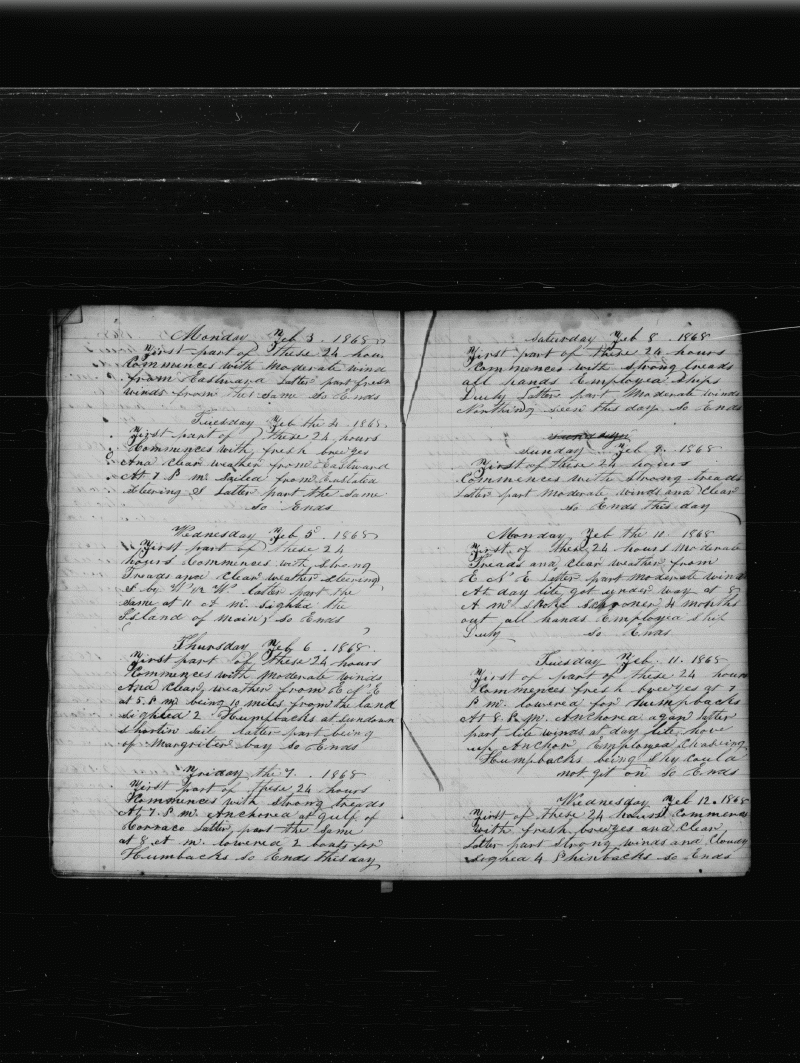 Monday Feb 3. 1868
First part of these 24 hours
Commences with Moderate wind
from Eastward Latter part fresh
winds from the same So Ends
Tuesday Feb the 4. 1868.
First part of these 24 hours
Commences with fresh breezes
And Clear weather from Eastward
At 1 P m. Sailed from
Steering S Latter part the same
So Ends
Wednesday Feb 5. 1868
First part of these 24
hours Commences with Strong
Treads and Clear weather Steering
S by W 1/2 W latter part the
same at 11 A m. Sighted the
Island of So Ends
Thursday Feb 6. 1868
First part of these 24 hours
Commences with Moderate winds
And Clear weather from E S E
at 5. P m being 10 miles from the land
Sighted 2 Humpbacks at Sundown
Shortin Sail latter part being
of Margriter bay So Ends
Friday the 7. 1868
First part of these 24 hours
Commences with Strong treads
At 7. P m. Anchored at gulf of
latter part the same
at 8 A m. lowered 2 boats for
Humbacks So Ends this day
Saturday Feb 8. 1868
First part of these 24 hours
Commences with Strong treads
all hands Employed Ships
Duty Latter part Moderate winds
Northing seen this day So Ends
Sunday Feb 9. 1868
First of these 24 hours
Commences with Strong treads
Latter part Moderate winds and Clear
So Ends this day
Monday Feb the 10 1868
First of these 24 hours Moderate
Treads and Clear weather from
E N E Latter part Moderate wind
At day lite got under way at 8
A m. Spoke Schooner 4 months
out all hands Employed Ship
Duty So Ends
Tuesday Feb. 11. 1868
First of part of these 24 hours
Commences fresh breezes at 1
P m. lowered for Humpbacks
At 8. P. m. Anchored again latter
part lite winds at day lite hove
up Anchor Employed Chaseing
Humpbacks being Shy Could
not get on So Ends
Wednesday Feb 12. 1868
First of these 24 hours Commences
with fresh breezes and Clear
Latter part Strong winds and Cloudy
Sighed 4 Phinbacks So Ends